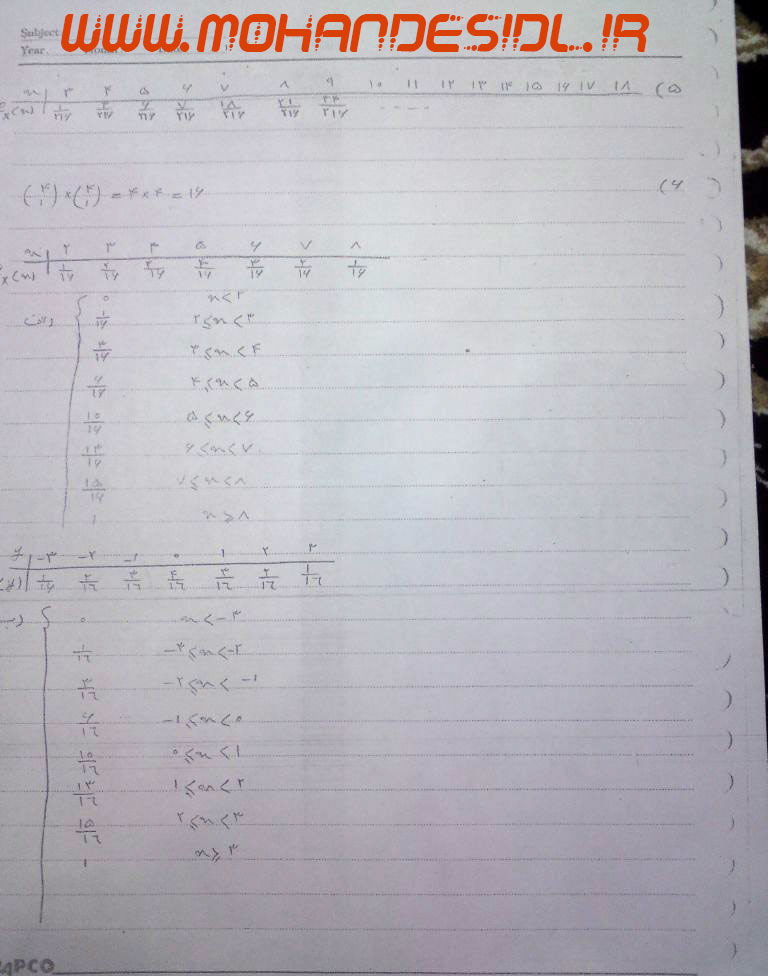 WWW.MOHANDESIDL.IR
Subject
Year.
۵) x ۳ ۴ ۵ ۶ ۷ ۸ ۹ ۱۰ ۱۱ ۱۲ ۱۳ ۱۴ ۱۵ ۱۶ ۱۷ ۱۸
x(x) ۱/۲۱۶ ۳/۲۱۶ ۶/۲۱۶ ۷/۲۱۶ ۱۸/۲۱۶ ۲۱/۲۱۶ ۲۴/۲۱۶ ----
۶) (۴ ۱) × (۴ ۱) = ۴ × ۴ = ۱۶
x ۲ ۳ ۴ ۵ ۶ ۷ ۸
x(x) ۱/۱۶ ۲/۱۶ ۳/۱۶ ۴/۱۶ ۳/۱۶ ۲/۱۶ ۱/۱۶
الف) { ۰ x < ۲
۱/۱۶ ۲ ≤ x < ۳
۳/۱۶ ۳ ≤ x < ۴
۶/۱۶ ۴ ≤ x < ۵
۱۰/۱۶ ۵ ≤ x < ۶
۱۳/۱۶ ۶ ≤ x < ۷
۱۵/۱۶ ۷ ≤ x < ۸
۱ x ≥ ۸
y -۳ -۲ -۱ ۰ ۱ ۲ ۳
(y) ۱/۱۶ ۲/۱۶ ۳/۱۶ ۴/۱۶ ۳/۱۶ ۲/۱۶ ۱/۱۶
ب) { ۰ x < -۳
۱/۱۶ -۳ ≤ x < -۲
۳/۱۶ -۲ ≤ x < -۱
۶/۱۶ -۱ ≤ x < ۰
۱۰/۱۶ ۰ ≤ x < ۱
۱۳/۱۶ ۱ ≤ x < ۲
۱۵/۱۶ ۲ ≤ x < ۳
۱ x ≥ ۳
APCO